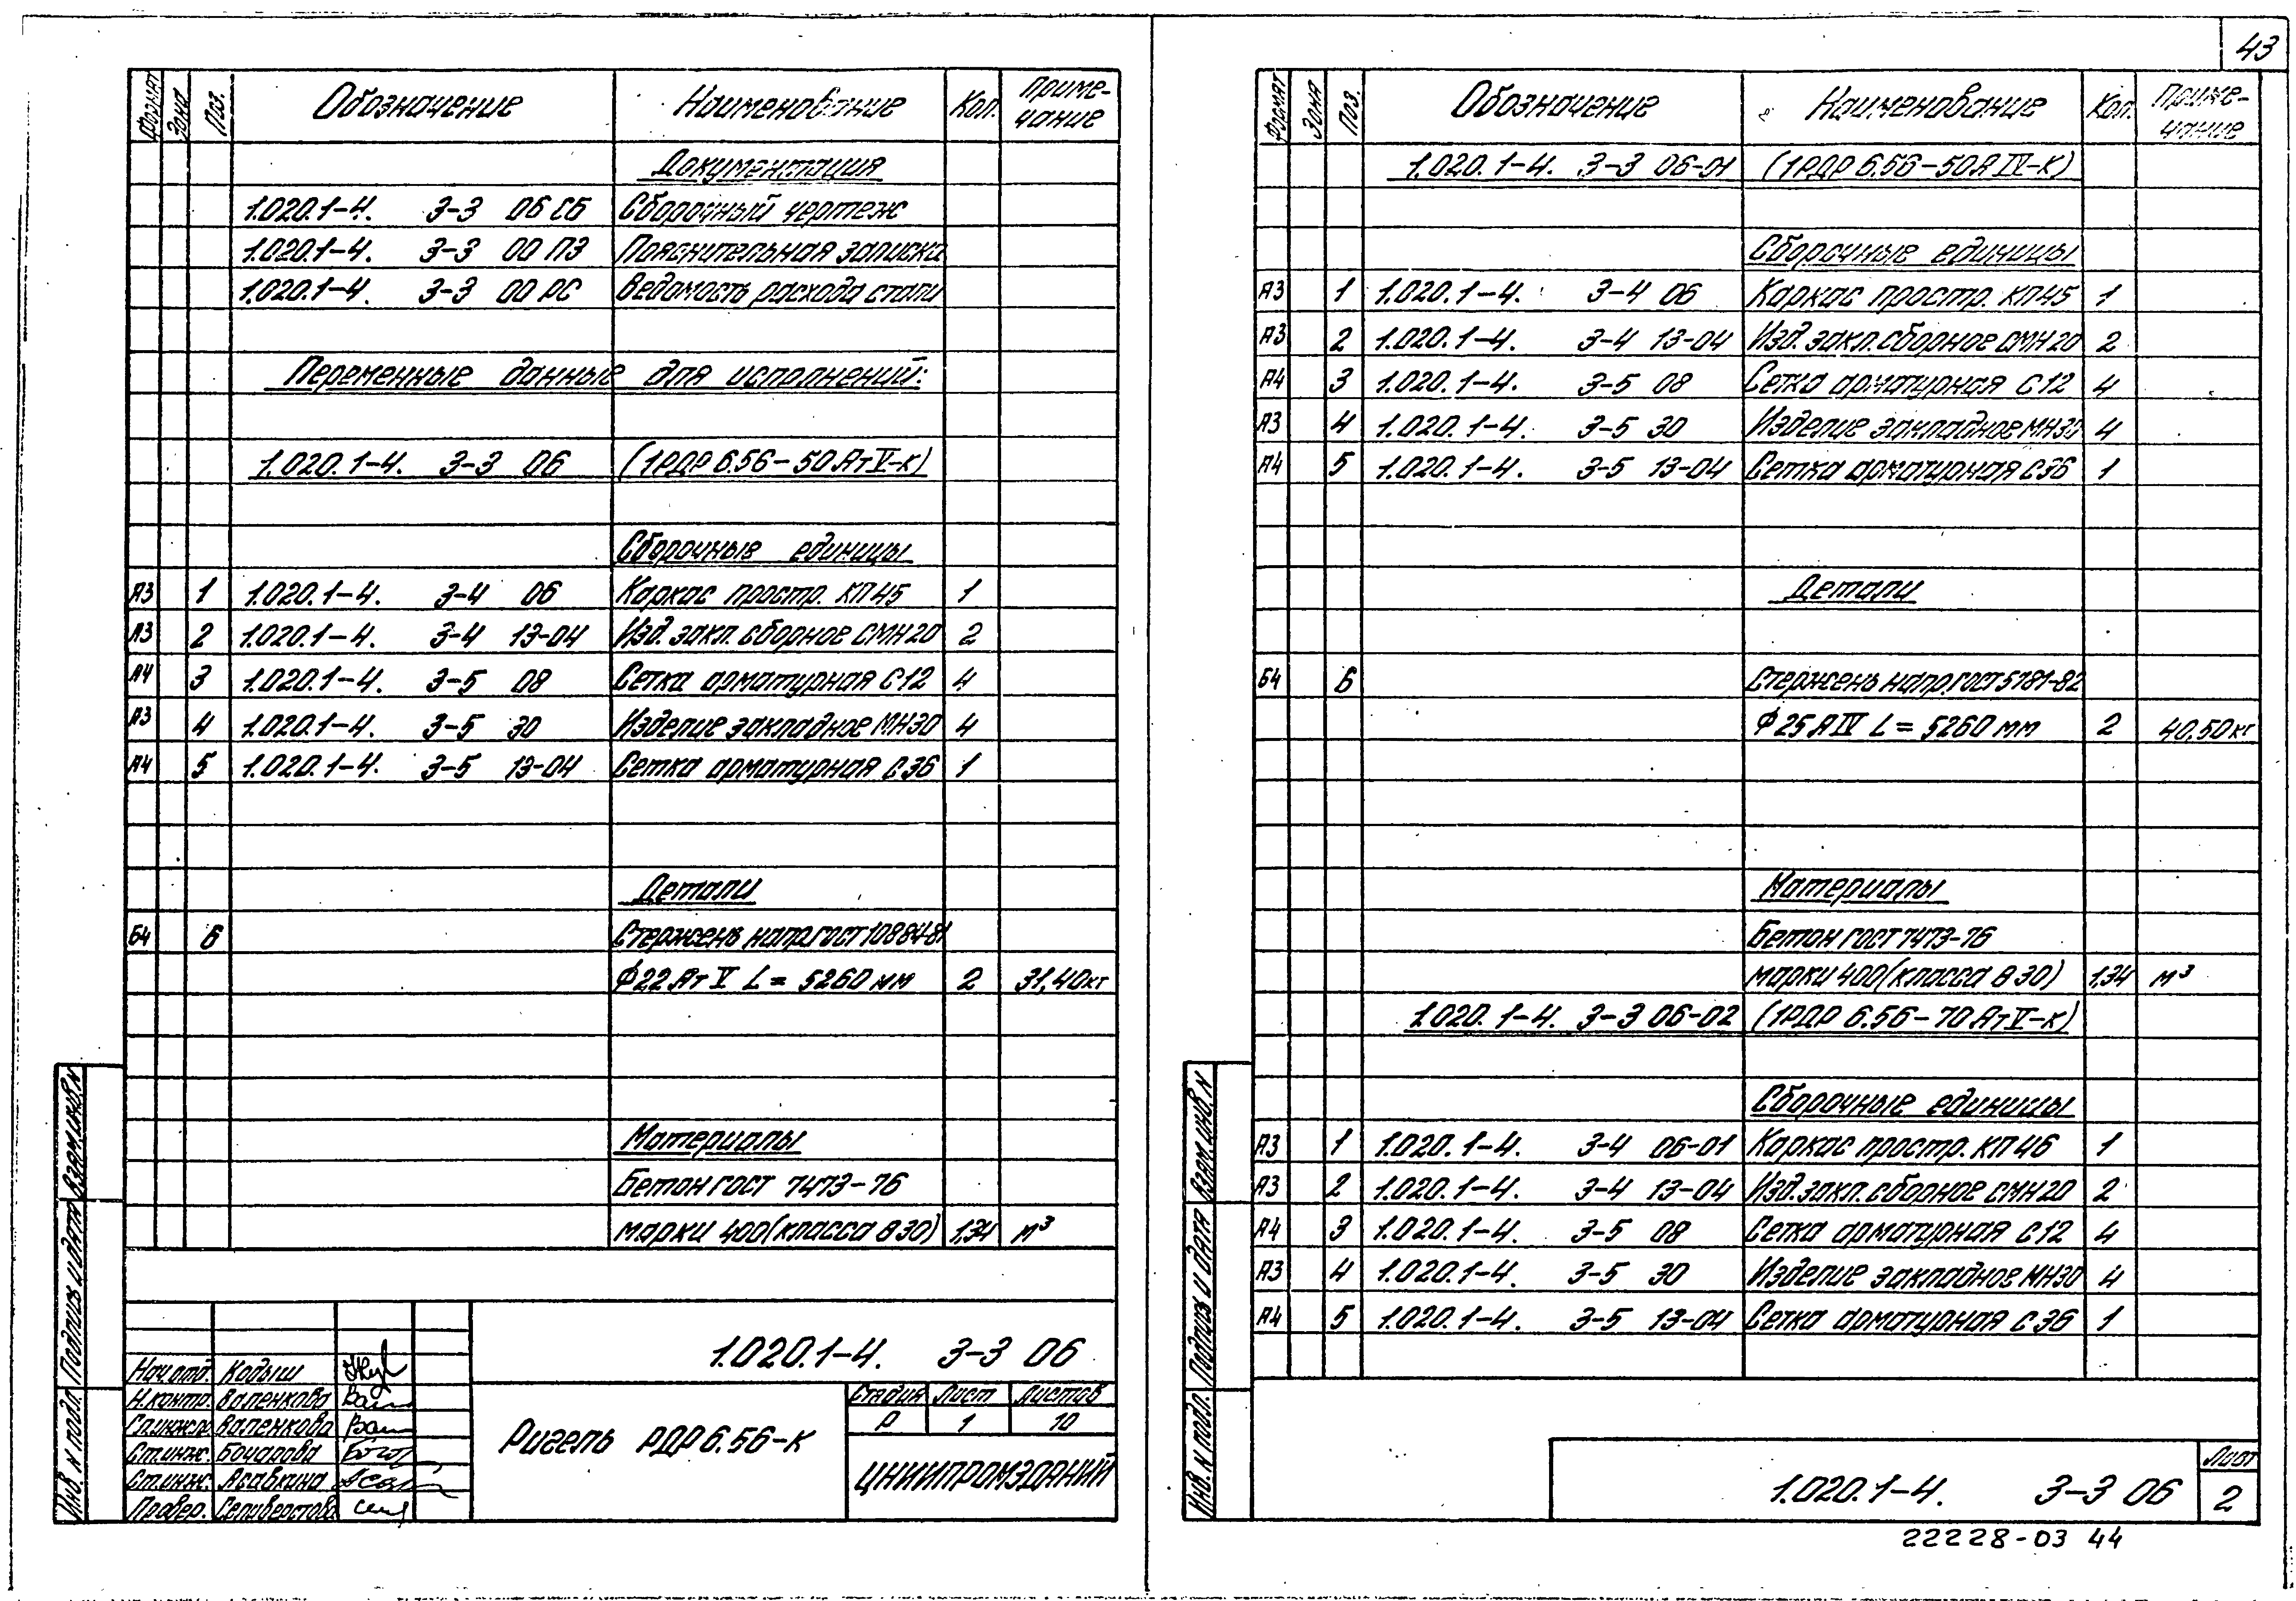 43
Формат Зона Поз. Обозначение Наименование Кол. Приме-
чание
Документация
1.020.1-4. 3-3 06 СБ Сборочный чертеж
1.020.1-4. 3-3 00 ПЗ Пояснительная записка
1.020.1-4. 3-3 00 РС Ведомость расхода стали
Переменные данные для исполнений:
1.020.1-4. 3-3 06 (1РДР 6.56-50 Ат V-к)
Сборочные единицы
А3 1 1.020.1-4. 3-4 06 Каркас простр. КП45 1
А3 2 1.020.1-4. 3-4 13-04 Изд. закл. сборное СМН20 2
А4 3 1.020.1-4. 3-5 08 Сетка арматурная С12 4
А3 4 1.020.1-4. 3-5 30 Изделие закладное МН30 4
А4 5 1.020.1-4. 3-5 13-04 Сетка арматурная С36 1
Детали
Б4 6 Стержень напр. ГОСТ 10884-81
Ф22 Ат V L = 5260 мм 2 31,40кг
Материалы
Бетон ГОСТ 7473-76
марки 400 (класса В30) 1,34 м³
1.020.1-4. 3-3 06
Нач.отд. Кодыш
Н.контр. Валенкова
Гл.инж.пр. Валенкова
Ст.инж. Бочарова
Ст.инж. Асавкина
Провер. Селиверстова
Ригель РДР 6.56-к
Стадия Лист Листов
Р 1 10
ЦНИИПРОМЗДАНИЙ
Инв. N подл. Подпись и дата Взам. инв. N
Формат Зона Поз. Обозначение Наименование Кол. Приме-
чание
1.020.1-4. 3-3 06-01 (1РДР 6.56-50 А IV-к)
Сборочные единицы
А3 1 1.020.1-4. 3-4 06 Каркас простр. КП45 1
А3 2 1.020.1-4. 3-4 13-04 Изд. закл. сборное СМН20 2
А4 3 1.020.1-4. 3-5 08 Сетка арматурная С12 4
А3 4 1.020.1-4. 3-5 30 Изделие закладное МН30 4
А4 5 1.020.1-4. 3-5 13-04 Сетка арматурная С36 1
Детали
Б4 6 Стержень напр. ГОСТ 5781-82
Ф25 А IV L = 5260 мм 2 40,50кг
Материалы
Бетон ГОСТ 7473-76
марки 400 (класса В30) 1,34 м³
1.020.1-4. 3-3 06-02 (1РДР 6.56-70 Ат V-к)
Сборочные единицы
А3 1 1.020.1-4. 3-4 06-01 Каркас простр. КП46 1
А3 2 1.020.1-4. 3-4 13-04 Изд. закл. сборное СМН20 2
А4 3 1.020.1-4. 3-5 08 Сетка арматурная С12 4
А3 4 1.020.1-4. 3-5 30 Изделие закладное МН30 4
А4 5 1.020.1-4. 3-5 13-04 Сетка арматурная С36 1
Инв. N подл. Подпись и дата Взам. инв. N
1.020.1-4. 3-3 06
Лист
2
22228-03 44